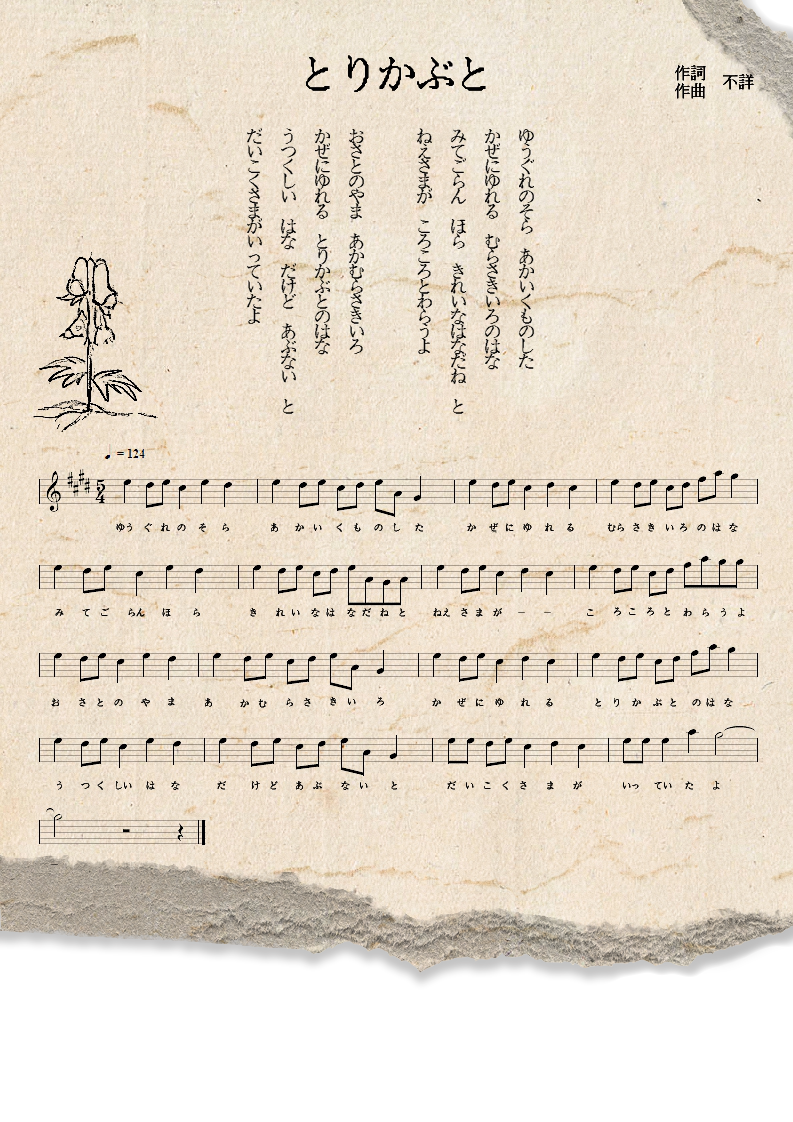 とりかぶと
作詞
作曲 不詳
ゆうぐれのそら あかいくものした
かぜにゆれる むらさきいろのはな
みてごらん ほら きれいなはなだね と
ねえさまが ころころとわらうよ
おさとのやま あかむらさきいろ
かぜにゆれる とりかぶとのはな
うつくしい はな だけど あぶない と
だいこくさまがいっていたよ
♩ = 124
5
4
ゆう ぐ れ の そ ら あ か い く も の し た か ぜ に ゆ れ る むら さ き い ろ の は な
み て ご らん ほ ら き れ い な は な だ ね と ねえ さ ま が － － こ ろ こ ろ と わ ら う よ
お さ と の や ま あ か む ら さ き い ろ か ぜ に ゆ れ る と り か ぶ と の は な
う つ く しい は な だ け ど あ ぶ な い と だ い こ く さ ま が いっ てい た よ